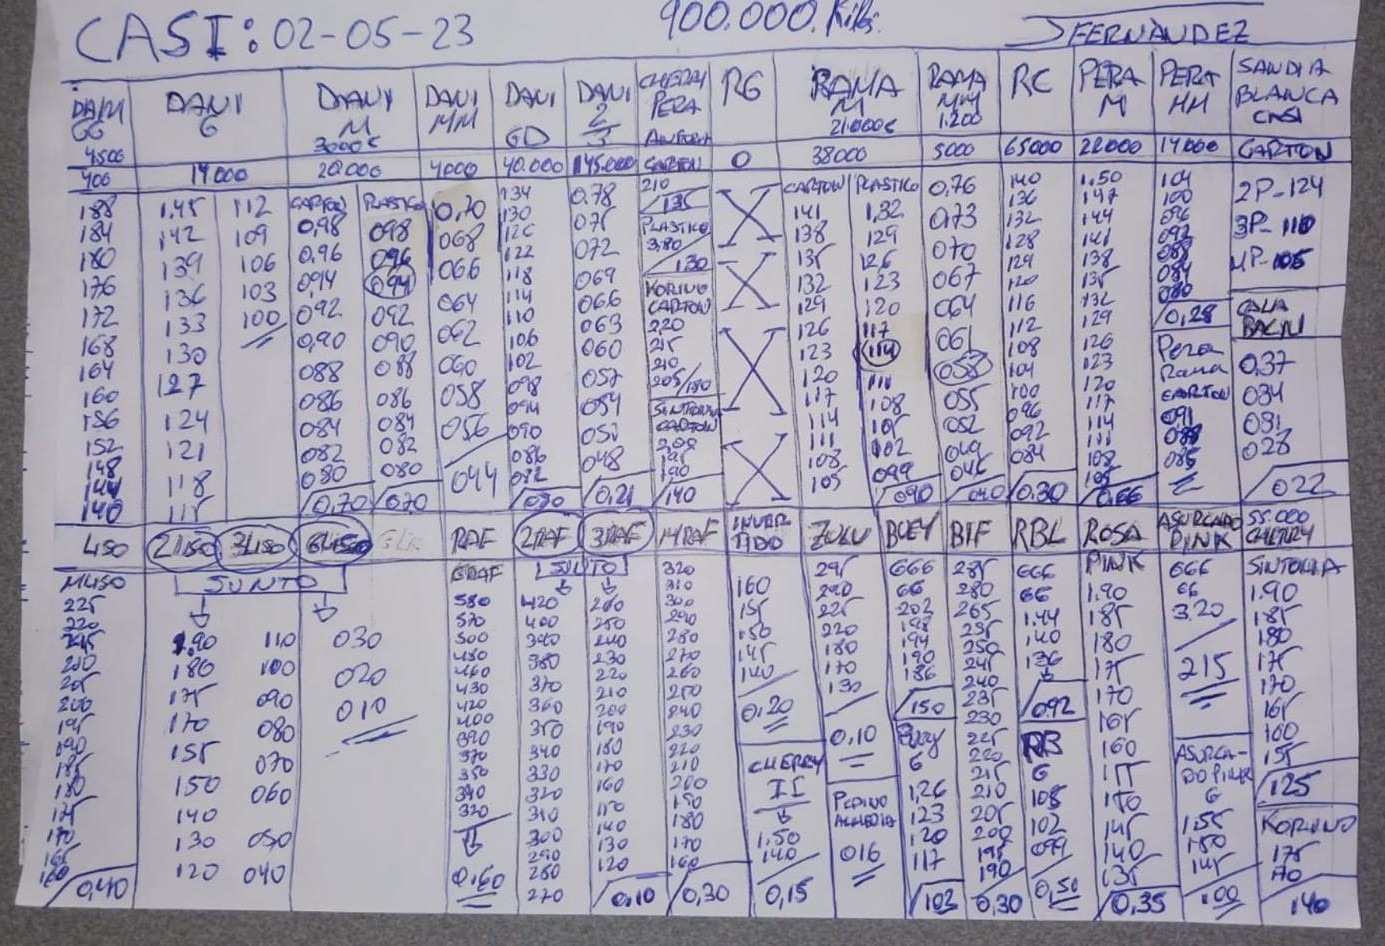 CASI: 02-05-23
900.000 Kilos
J FERNANDEZ
DANI GG
DANI G
DANI M 3000€
DANI MM
DANI GD
DANI 2
CHERRY PERA
RG
RAMA M 21.000€
RAMA MM 1.200
RC
PERA M
PERA MM
SANDIA BLANCA CASI
4500 14000 20.000 4000 40.000 145.000 CARTON 0 38000 5000 65000 22000 14000 CARTON
188
184
180
176
172
168
164
160
156
152
148
144
140
1.45 112
142 109
139 106
136 103
133 100
130
127
124
121
118
115
CARTON PLASTICO
0,98 098
0.96 096
094 094
092 092
0,90 090
088 088
086 086
084 084
082 082
080 080
0,70 070
0,70
068
066
064
062
060
058
056
044
134
130
126
122
118
114
110
106
102
098
094
090
086
082
0.78
075
072
069
066
063
060
057
054
051
048
0,21
210
135
PLASTICO
3,80
130
KORINO
CARTON
220
215
210
205/180
SINTONIA
CARTON
200
195
190
140
CARTON PLASTICO
141 1,32
138 129
135 126
132 123
129 120
126 117
123 114
120 111
117 108
114 105
111 102
108 099
105 090
0,76
0,73
070
067
064
061
058
055
052
049
046
040
140
136
132
128
124
120
116
112
108
104
100
096
092
084
0.30
1.50
147
144
141
138
135
132
129
126
123
120
117
114
111
108
105
0,66
104
100
096
092
088
084
080
0,28
Pera
Rama
CARTON
091
088
085
2P-124
3P-110
4P-105
CALA
BACIN
0.37
034
031
028
022
LISO 2LISO 3LISO GLISO RAF 2RAF 3RAF MRAF INVER TIDO ZULU BUEY BTF RBL ROSA ASURCADO PINK 55.000 CHERRY
MLISO
225
220
215
210
205
200
195
190
185
180
175
170
165
160
0,40
JUNTO
1.90 110
180 100
175 090
170 080
155 070
150 060
140
130 050
120 040
030
020
010
GRAF
580
570
500
480
460
430
420
400
390
370
350
340
320
0,160
JUNTO
420 260
400 250
390 240
380 230
370 220
360 210
350 200
340 190
330 180
320 170
310 160
300 150
290 140
280 130
270 120
0,10
320
310
300
290
280
270
260
250
240
230
220
210
200
190
180
170
160
0,30
160
155
150
145
140
0,20
CHERRY
II
1.50
140
0,15
295
290
225
220
180
170
130
0,10
PEPINO
ALMERIA
016
666
66
202
198
194
190
186
150
Buey
G
1,26
123
120
117
103
285
280
265
255
250
245
240
235
230
225
220
215
210
205
200
195
190
0,30
666
66
1.44
140
136
092
RB
G
108
102
099
0,50
PINK
1.90
185
180
175
170
165
160
155
150
145
140
135
0,35
666
66
3.20
215
ASURCA-
DO PINK
G
155
150
145
100
SINTONIA
1.90
185
180
175
170
165
160
155
125
KORINO
175
170
140